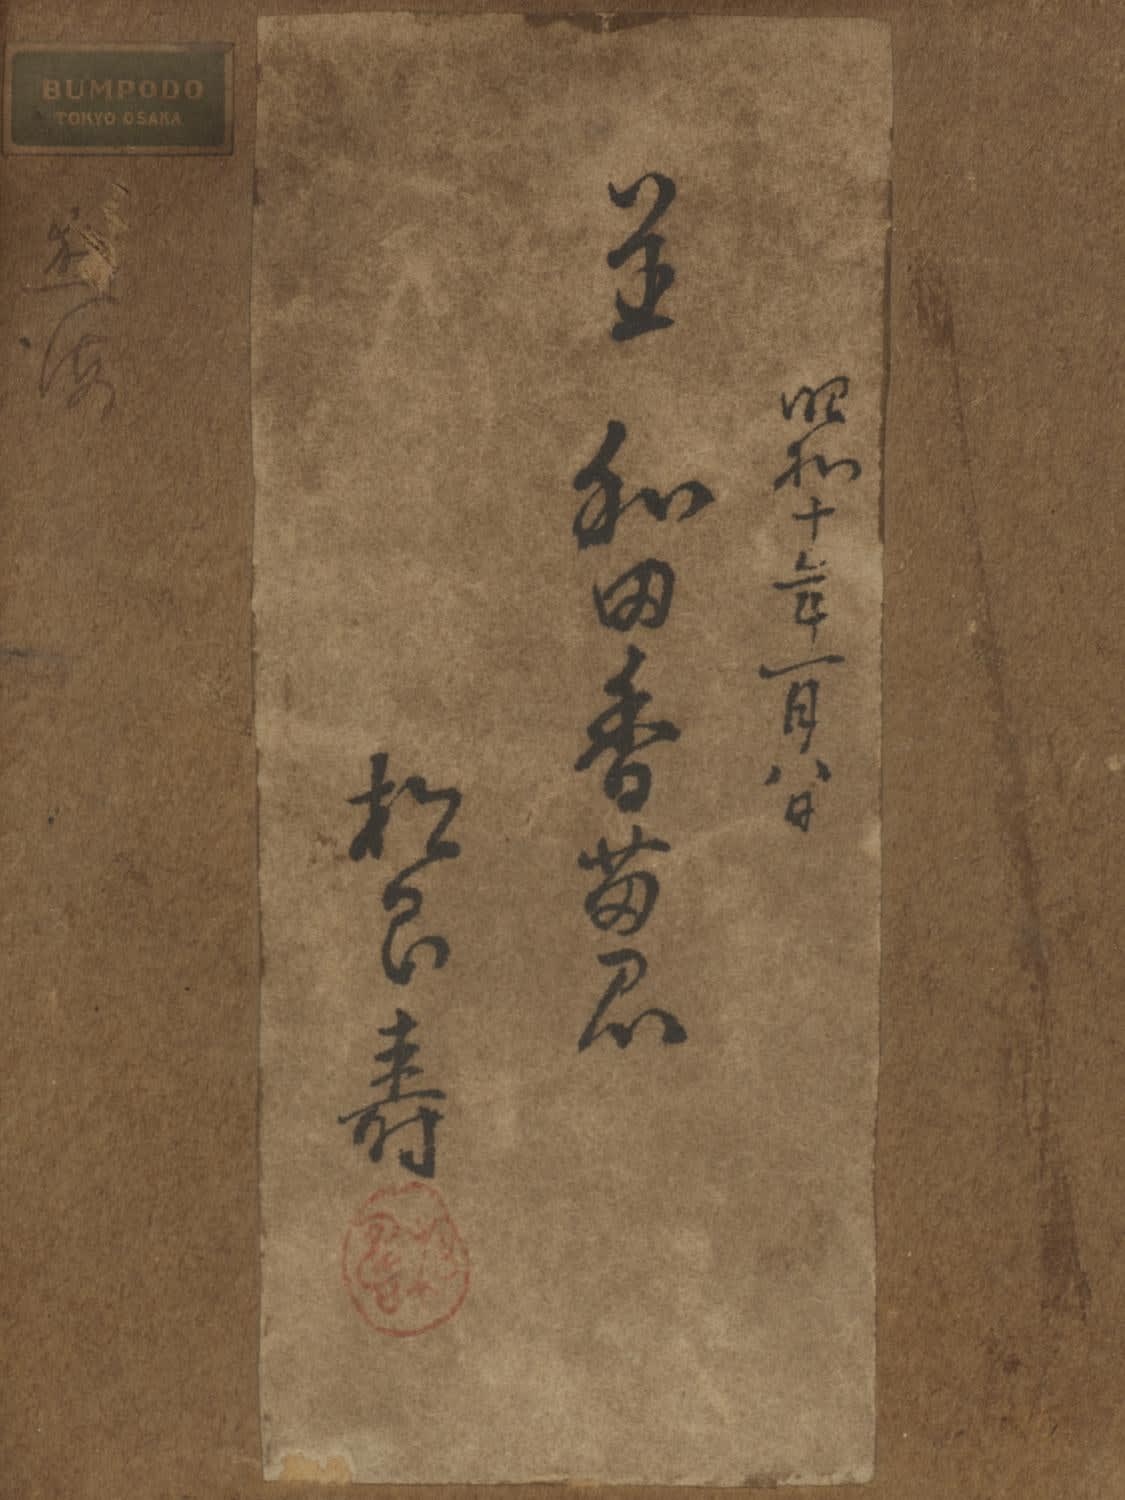 BUMPODO
TOKYO OSAKA
昭和十年一月八日
呈 和田香苗君
松良寿